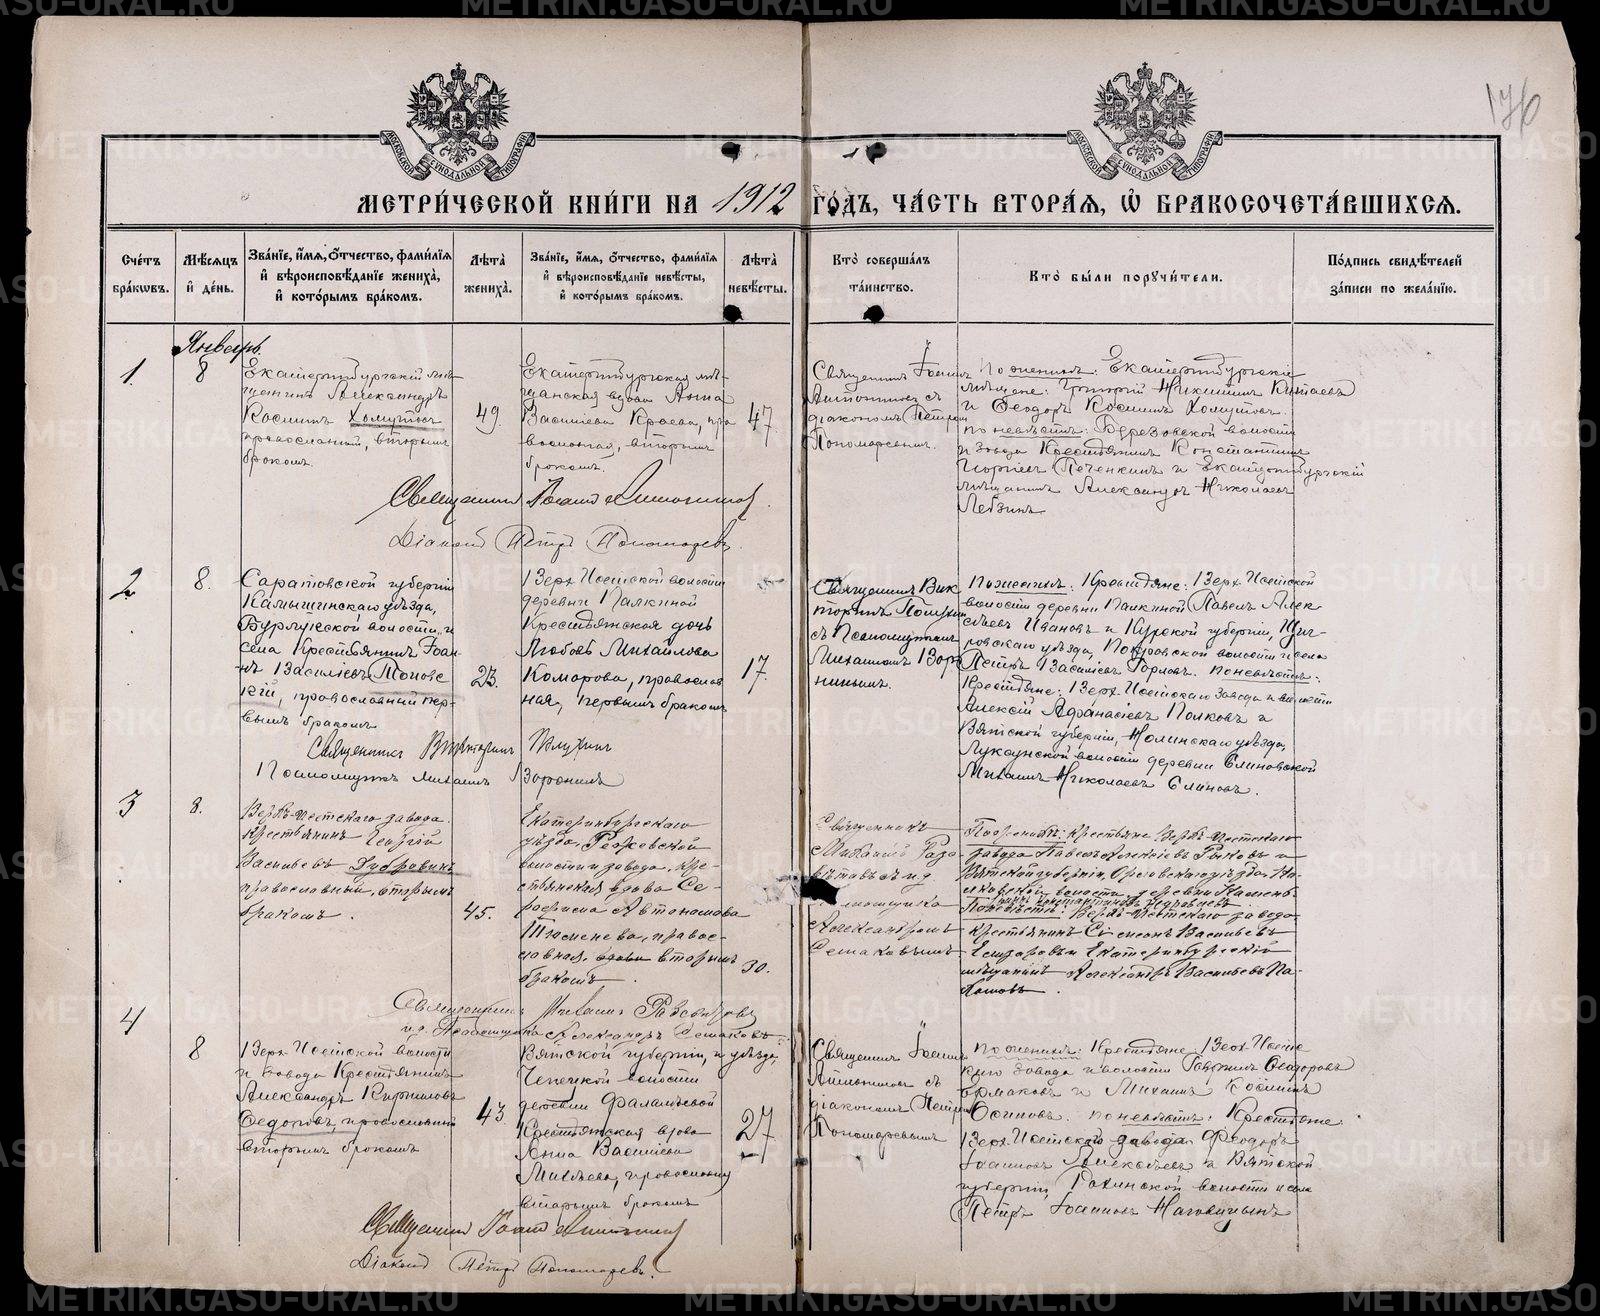 176
МЕТРИ́ЧЕСКОЙ КНИ́ГИ НА 1912 ГО́ДЪ, ЧА́СТЬ ВТОРА́Я, Ѡ҆ БРАКОСОЧЕТА́ВШИХСЯ.
Сче́тъ бра́кѡвъ.
Мѣ́сяцъ и҆ де́нь.
Зва́нїе, и҆́мя, ѻ҆́тчество, фами́лїя и҆ вѣроисповѣ́данїе жениха̀, и҆ кото́рымъ бра́комъ.
Лѣ́та жениха̀.
Зва́нїе, и҆́мя, ѻ҆́тчество, фами́лїя и҆ вѣроисповѣ́данїе невѣ́сты, и҆ кото́рымъ бра́комъ.
Лѣ́та невѣ́сты.
Кто̀ соверша́лъ та́инство.
Кто̀ бы́ли порꙋчи́тели.
По́дпись свидѣ́телей за́писи по жела́нїю.
Январь.
1.
8
Екатеринбургскій мѣ-
щанинъ Александръ
Косминъ Хомутовъ
православный, вторымъ
бракомъ.
49.
Екатеринбургская мѣ-
щанская вдова Анна
Васильева Краева, пра
вославная, вторымъ
бракомъ.
47.
Священникъ Іоаннъ
діакономъ Петромъ
Пономаревымъ.
По женихѣ: Екатеринбургскіе
мѣщане: Григорій Никитинъ
и Ѳеодоръ Косминъ Хомутовъ.
по невѣстѣ: Березовской волости
и завода Крестьянинъ Константинъ
Георгіевъ Печенкинъ и Екатеринбургскій
мѣщанинъ Александръ Николаевъ
Лебзинъ
Священникъ Іоаннъ
Діаконъ Петръ Пономаревъ.
2
8.
Саратовской губерніи
Камышинскаго уѣзда,
Бурлукской волости и
села Крестьянинъ Іоан-
нъ Васильевъ Моповс
кій, православный пер-
вымъ бракомъ
23.
Верх-Исетской волости
деревни Палкиной
Крестьянская дочь
Любовь Михайлова
Комарова, православ
ная, первымъ бракомъ
17.
Священникъ Вик
торинъ
съ Псаломщикомъ
Михаиломъ Воро
нинымъ.
По женихѣ: Крестьяне: Верх-Исетской
волости деревни Палкиной Павелъ Алек
сѣевъ Ивановъ и Курской губерніи, Щиг-
ровскаго уѣзда, Покровской волости и села
Петръ Васильевъ Горловъ. По невѣстѣ:
Крестьяне: Верх-Исетскаго завода и волости
Алексій Афанасіевъ Полковъ и
Вятской губерніи, Нолинскаго уѣзда,
волости деревни Елиновской
Михаилъ Николаевъ Елиновъ.
Священникъ Викторинъ
Псаломщикъ Михаилъ Воронинъ
3
8.
Верхъ-Исетскаго завода
крестьянинъ Георгій
Васильевъ Дубровинъ
православный, вторымъ
бракомъ.
45.
Екатеринбургскаго
уѣзда, Режевской
волости и завода, кре-
стьянская вдова Се-
рафима Автономова
православ-
ная, вторымъ
бракомъ.
30.
Священникъ
Михаилъ
и д.
Александромъ
Семаковымъ
По женихѣ: крестьяне Верхъ-Исетскаго
завода Павелъ Алексіевъ Рыковъ и
Вятской губерніи, Орловскаго уѣзда
По невѣстѣ: Верхъ-Исетскаго завода
крестьянинъ Симеонъ Васильевъ
и Екатеринбургскій
мѣщанинъ Александръ Васильевъ
Священникъ Михаилъ
и д. Псаломщика Александръ Семаковъ
4
8
Верх-Исетской волости
и завода Крестьянинъ
Александръ Кирилловъ
Ѳедоровъ, православный
вторымъ бракомъ
43.
Вятской губерніи, и уѣзда,
Чепецкой волости
деревни Фалалѣевой
Крестьянская вдова
Анна Васильева
Михѣева, православная,
вторымъ бракомъ
27
Священникъ Іоаннъ
діакономъ Петромъ
Пономаревымъ
По женихѣ: Крестьяне Верх-Исетс
каго завода и волости Гавріилъ Ѳеодоровъ
Ермаковъ и Михаилъ Косминъ
Осиповъ. по невѣстѣ: Крестьяне:
Верх-Исетскаго завода Ѳеодоръ
Іоанновъ Алексѣевъ и Вятской
губерніи, волости и села
Петръ Іоанновъ Наговицынъ
Священникъ Іоаннъ
Діаконъ Петръ Пономаревъ.
METRIKI.GASO-URAL.RU